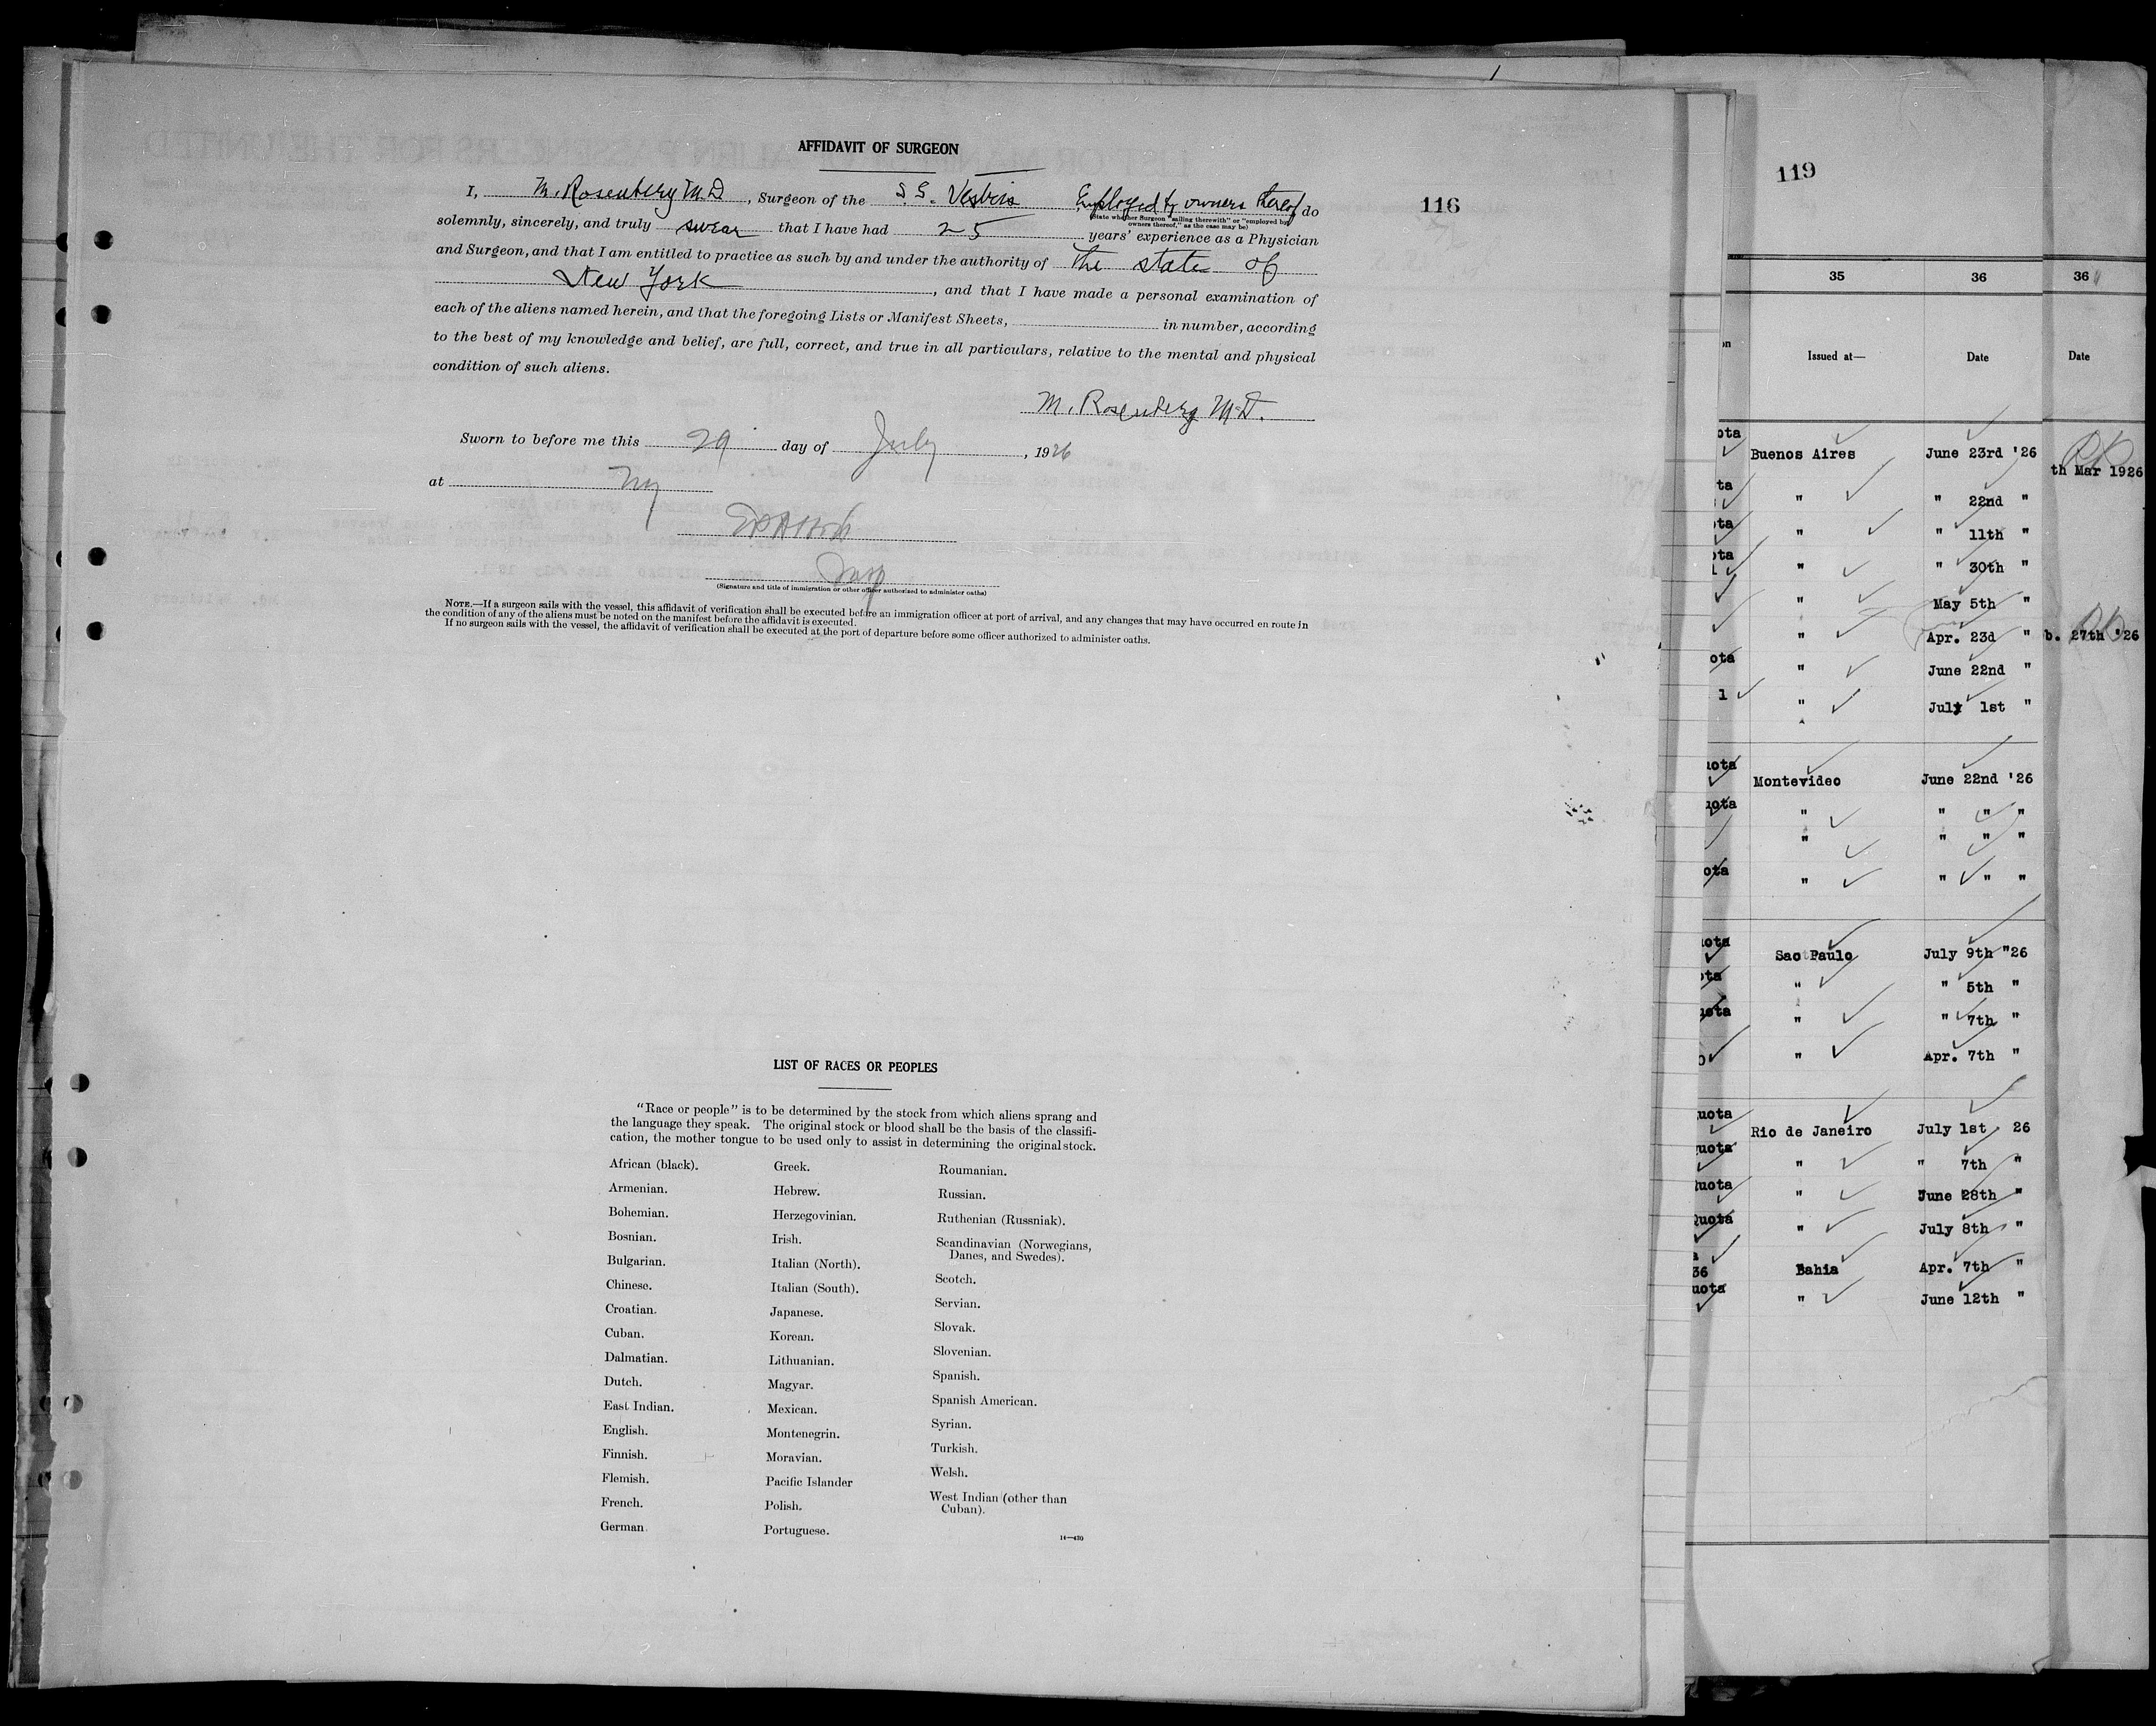 AFFIDAVIT OF SURGEON
116
I, M. Rosenberg M.D., Surgeon of the S.S. Vestris Employed by owners thereof do
(State whether Surgeon "sailing therewith" or "employed by
owners thereof," as the case may be)
solemnly, sincerely, and truly swear that I have had 25 years' experience as a Physician
and Surgeon, and that I am entitled to practice as such by and under the authority of The state of
New York, and that I have made a personal examination of
each of the aliens named herein, and that the foregoing Lists or Manifest Sheets, in number, according
to the best of my knowledge and belief, are full, correct, and true in all particulars, relative to the mental and physical
condition of such aliens.
M. Rosenberg M.D.
Sworn to before me this 29 day of July, 1926
at NY
Insp
(Signature and title of immigration or other officer authorized to administer oaths)
NOTE.—If a surgeon sails with the vessel, this affidavit of verification shall be executed before an immigration officer at port of arrival, and any changes that may have occurred en route in
the condition of any of the aliens must be noted on the manifest before the affidavit is executed.
If no surgeon sails with the vessel, the affidavit of verification shall be executed at the port of departure before some officer authorized to administer oaths.
LIST OF RACES OR PEOPLES
"Race or people" is to be determined by the stock from which aliens sprang and
the language they speak. The original stock or blood shall be the basis of the classifi-
cation, the mother tongue to be used only to assist in determining the original stock.
African (black).
Armenian.
Bohemian.
Bosnian.
Bulgarian.
Chinese.
Croatian.
Cuban.
Dalmatian.
Dutch.
East Indian.
English.
Finnish.
Flemish.
French.
German.
Greek.
Hebrew.
Herzegovinian.
Irish.
Italian (North).
Italian (South).
Japanese.
Korean.
Lithuanian.
Magyar.
Mexican.
Montenegrin.
Moravian.
Pacific Islander
Polish.
Portuguese.
Roumanian.
Russian.
Ruthenian (Russniak).
Scandinavian (Norwegians,
Danes, and Swedes).
Scotch.
Servian.
Slovak.
Slovenian.
Spanish.
Spanish American.
Syrian.
Turkish.
Welsh.
West Indian (other than
Cuban).
14—430
119
35 36 36
Issued at— Date Date
Buenos Aires June 23rd '26
th Mar 1926
" " 22nd "
" " 11th "
" " 30th "
" May 5th "
" Apr. 23d " b. 27th '26
" June 22nd "
" July 1st "
Montevideo June 22nd '26
" " " "
" " " "
" " " "
Sao Paulo July 9th "26
" " 5th "
" " 7th "
" Apr. 7th "
Rio de Janeiro July 1st 26
" " 7th "
" June 28th "
" July 8th "
Bahia Apr. 7th "
" June 12th "